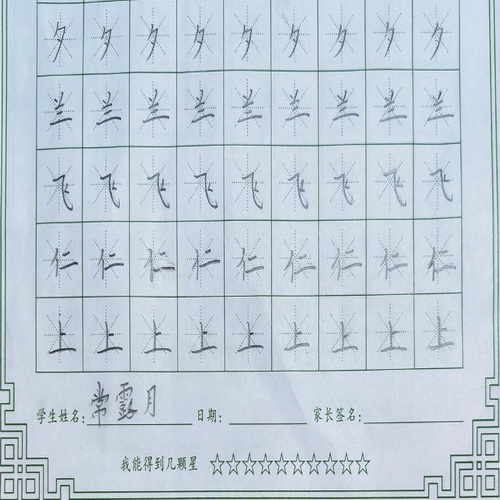 夕 夕 夕 夕 夕 夕 夕 夕 夕
兰 兰 兰 兰 兰 兰 兰 兰 兰
飞 飞 飞 飞 飞 飞 飞 飞 飞
仁 仁 仁 仁 仁 仁 仁 仁 仁
上 上 上 上 上 上 上 上 上
学生姓名: 常露月 日期: 家长签名:
我能得到几颗星 ☆☆☆☆☆☆☆☆☆☆